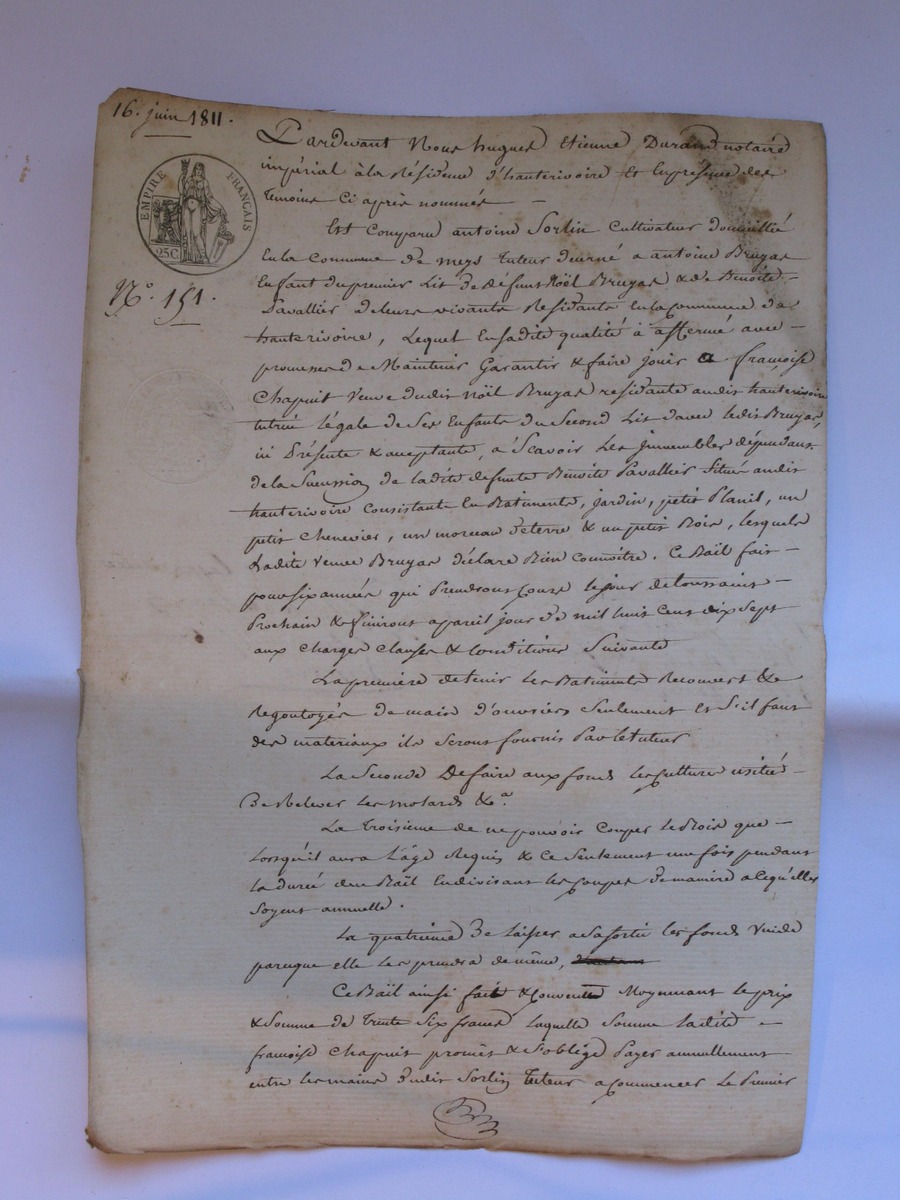 16. juin 1811.
EMPIRE FRANÇAIS
25 C.
N.° 151.
Pardevant Nous hugues Etienne Durand notaire
impérial à la Résidence d'hauterivoire Et En présence des
temoins Ci après nommés
Est Comparu antoine Sorlin Cultivateur domicillié
En la Commune de meys tuteur décerné a antoine Bruyas
Enfant du premier Lit de défunt Noël Bruyas & de Benoite
Pavallier de leurs vivants Résidants En la Commune de
hauterivoire, Lequel En sadite qualité à affermé avec
promesse de Maintenir Garantir & faire jouir a françoise
Chapuit Veuve dudit Noël Bruyas residante audit hauterivoire
tutrice légale de Ses Enfants du Second Lit d'avec ledit Bruyas,
ici Présente & acceptante, a Scavoir Les jmmeubles dépendants
de la Succession de ladite defunte Benoite Pavallier Situé audit
hauterivoire Consistants En Batiments, jardin, petit Planil, un
petit Chenevier, un morceau de terre & un petit Bois, lesquels
Ladite Veuve Bruyas déclare Bien Connoitre. Ce Bail fait
pour six années qui Prendront Cours le jour de toussaint
Prochain & finiront a pareil jour de mil huit Cent dix Sept
aux Charges Clauses & Conditions Suivante
La premiére de tenir Les Batiments Recouvert &
Regoutoyés de main d'ouvriers Seulement Et S'il faut
des materiaux ils Seront fournis Par le tuteur
La Seconde De faire aux fonds Les Cultures usitée
De Relever les motards &.a
La troisieme de ne pouvoir Couper le Bois que
Lorsqu'il aura L'âge Requis & Ce Seulement une fois pendant
la durée du Bail En divisant les Coupes de maniere a Ce qu'elles
Soyent annuelle.
La quatrieme De laisser a Sa sortie les fonds Vuide
parceque elle les prendra de même,
Ce Bail ainsi fait & Convenu Moyennant le prix
& Somme de trente Six francs laquelle Somme ladite
francoise Chapuit promet & S'oblige Payer annuellement
entre les mains dudit Sorlin tuteur a Commencer Le Premier